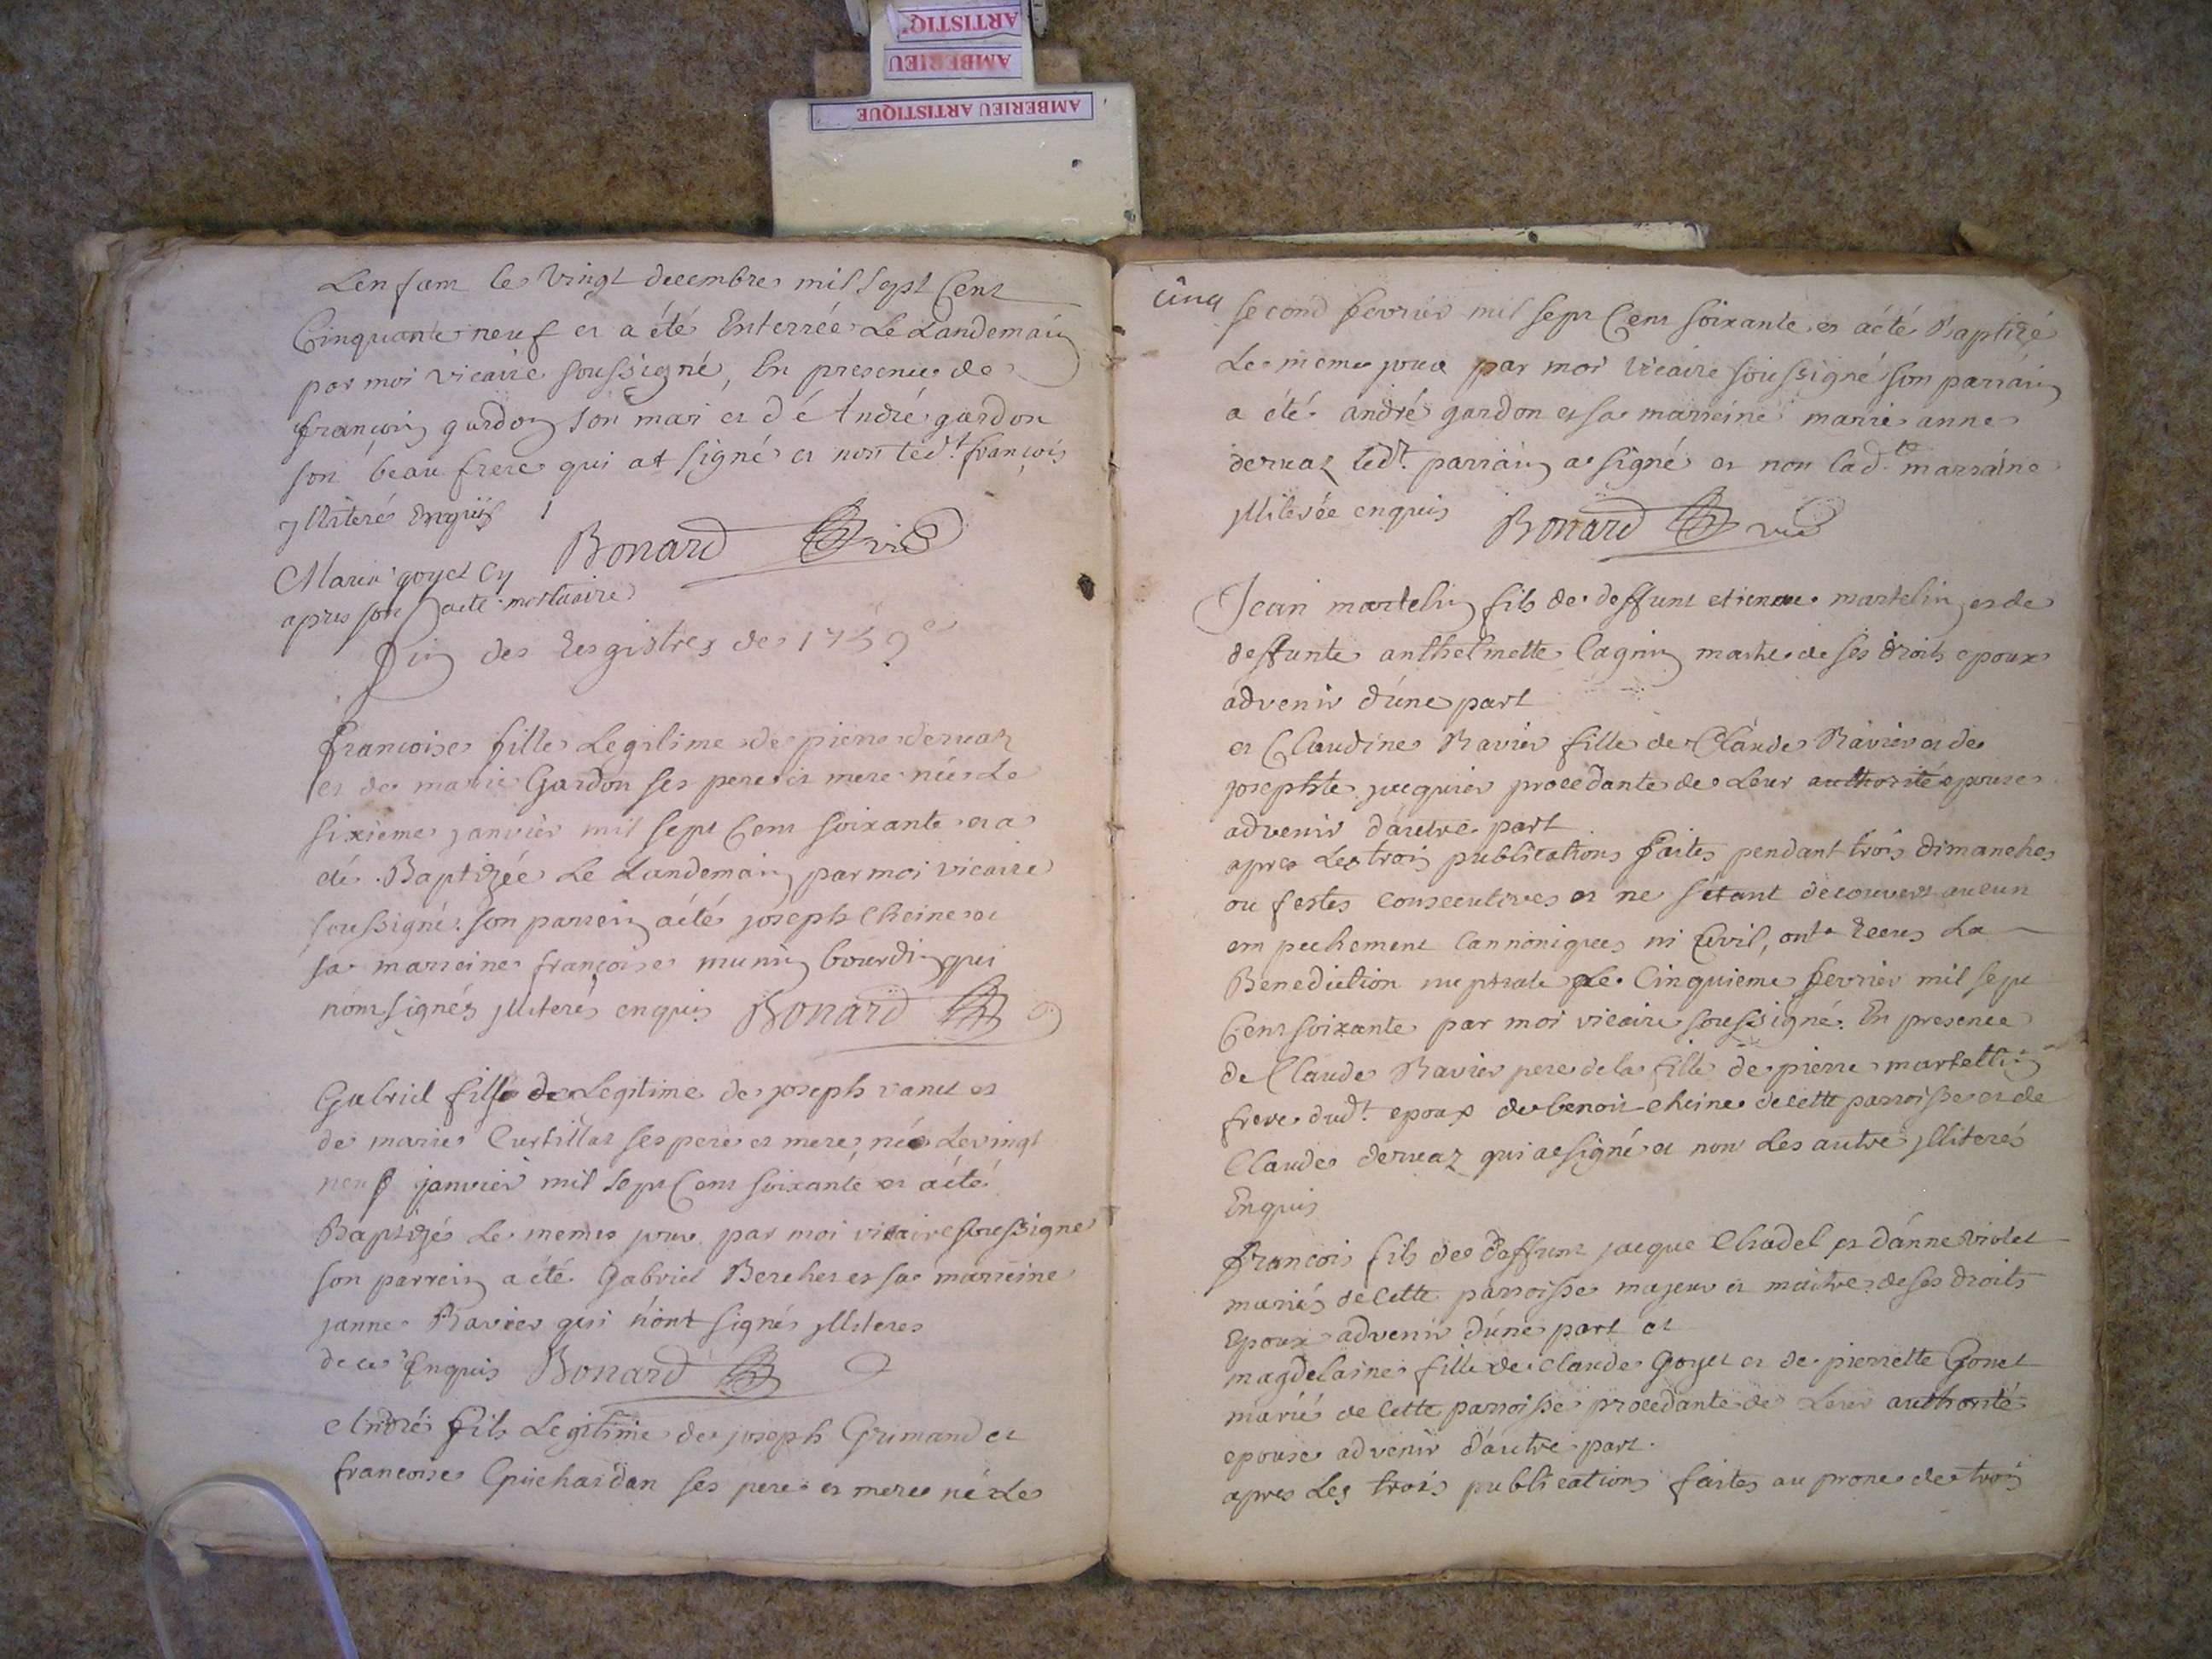 ARTISTIQ
AMBERIEU
AMBERIEU ARTISTIQUE
Lenfant le vingt decembre mil sept Cent
Cinquante neuf et a été Enterrée Le Landemain
par moi vicaire soussigné, En presence de
françois gardon son mari et dé André gardon
son beau frere qui at signé et non led.t françois
jlliteré Enquis
Bonard vic
Marie goyet Cy
apres son acte mortuaire
fin des Resgistres de 1759
francoise fille Legitime de pierre deruaz
et de marie Gardon ses pere et mere née Le
sixieme janvier mil sept Cent soixante et a
été Baptizée Le Landemain par moi vicaire
soussigné son parrein a été joseph Cheine et
sa marreine françoise munin bourdin qui
n'ont signés jlliterés enquis Bonard
Gabriel fils de Legitime de joseph vanet et
de marie Curtillat ses pere et mere, né Le vingt
neuf janvier mil sept Cent soixante et a été
Baptizé Le meme jour par moi vicaire soussigne
son parrein a été Gabriel Bercher et sa marreine
janne Ravier qui n'ont signés jlliteres
de ce Enquis Bonard
André fils Legitime de joseph Grumand et
francoise Guichardan ses pere et mere né Le
cinq
second fevrier mil sept Cent soixante et a été Baptizé
Le meme jour par moi vicaire soussigné son parrain
a été andré gardon et sa marreine marie anne
deruaz led.t parrain a signé et non lad.te marraine
jlliterée enquis Bonard vic
Jean martelin fils de deffunt etienne martelin et de
deffunte anthelmette Cagnin maitre de ses droits epoux
advenir d'une part
et Claudine Ravier fille de Claude Ravier et de
josephte jacquier procedante de Leur authorité epouse
advenir d'autre part
apres Les trois publications faites pendant trois dimanches
ou festes consecutives et ne s'etant decouvert aucun
empechement Cannonique ni Civil, ont recus La
Benediction nuptiale Le Cinquieme fevrier mil sept
Cent soixante par moi vicaire soussigné. En presence
de Claude Ravier pere de la fille de pierre martellin
frere dud.t epoux de benoit cheine de cette parroisse et de
Claude deruaz qui a signé et non Les autre jlliterés
Enquis
francois fils de deffunt jacque Chadel et d'anne violet
mariés de cette parroisse majeur et maitre de ses droits
Epoux advenir d'une part et
magdelaine fille de claude Goyet et de pierrette Gonet
marié de cette parroisse procedante de Leur authorité
epouse advenir d'autre part.
apres Les trois publications faites au prone de trois